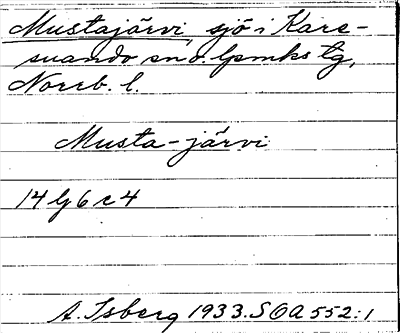 Mustajärvi, sjö i Kare-
suando sn o. lpmks tg,
Norrb. l.
Musta-järvi
14 lj 6 c 4
A. Isberg 1933. SOA 552:1